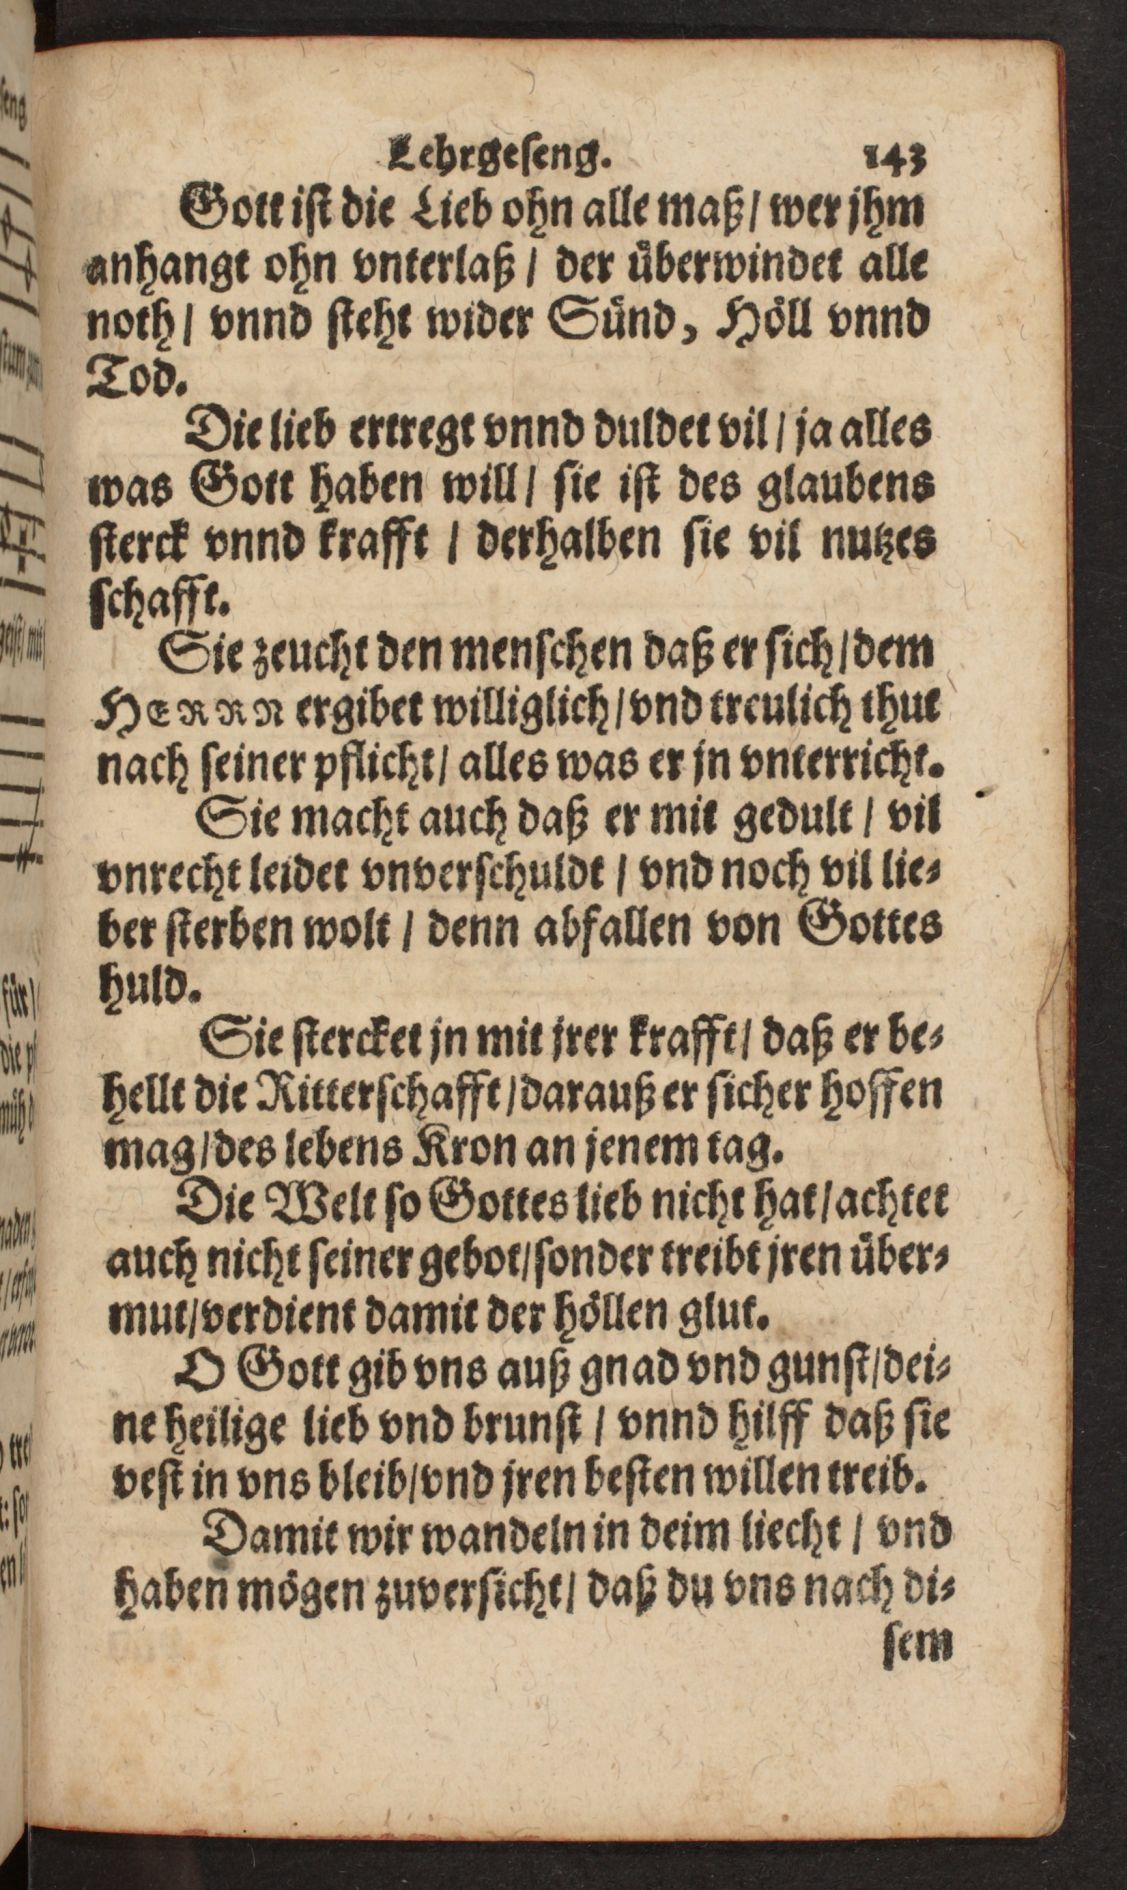 Lehrgeseng. 143
Gott ist die Lieb ohn alle maß / wer jhm
anhangt ohn vnterlaß / der überwindet alle
noth / vnnd steht wider Sünd, Höll vnnd
Tod.
Die lieb ertregt vnnd duldet vil / ja alles
was Gott haben will / sie ist des glaubens
sterck vnnd krafft / derhalben sie vil nutzes
schafft.
Sie zeucht den menschen daß er sich / dem
HERRN ergibet williglich / vnd treulich thut
nach seiner pflicht / alles was er jn vnterricht.
Sie macht auch daß er mit gedult / vil
vnrecht leidet vnverschuldt / vnd noch vil lie-
ber sterben wolt / denn abfallen von Gottes
huld.
Sie stercket jn mit jrer krafft / daß er be-
hellt die Ritterschafft / darauß er sicher hoffen
mag / des lebens Kron an jenem tag.
Die Welt so Gottes lieb nicht hat / achtet
auch nicht seiner gebot / sonder treibt jren über-
mut / verdient damit der höllen glut.
O Gott gib vns auß gnad vnd gunst / dei-
ne heilige lieb vnd brunst / vnnd hilff daß sie
vest in vns bleib / vnd jren besten willen treib.
Damit wir wandeln in deim liecht / vnd
haben mögen zuversicht / daß du vns nach di-
sem